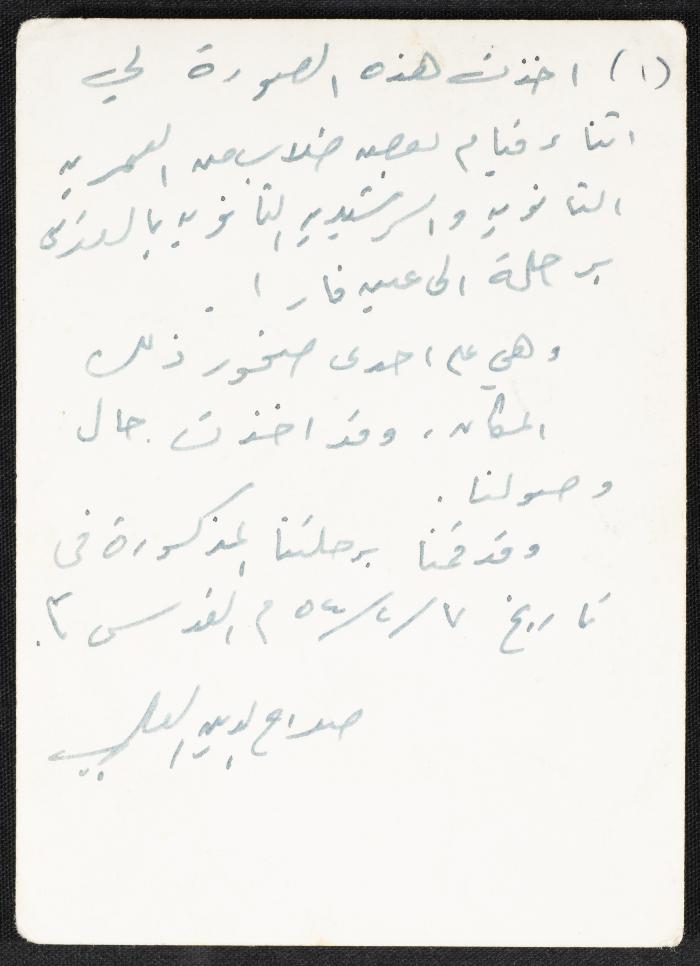 (١) اخذت هذه الصورة لي
اثناء قيام بعض طلاب من العمريه
الثانويه والرشيديه الثانويه بالقدس
برحلة الى عين فارا.
وهي على احدى صخور ذلك
المكان، وقد اخذت حال
وصولنا.
وقد قمنا برحلتنا المذكورة في
تاريخ ٧/٤/٥٤ م القدس
صلاح الدين العلمي